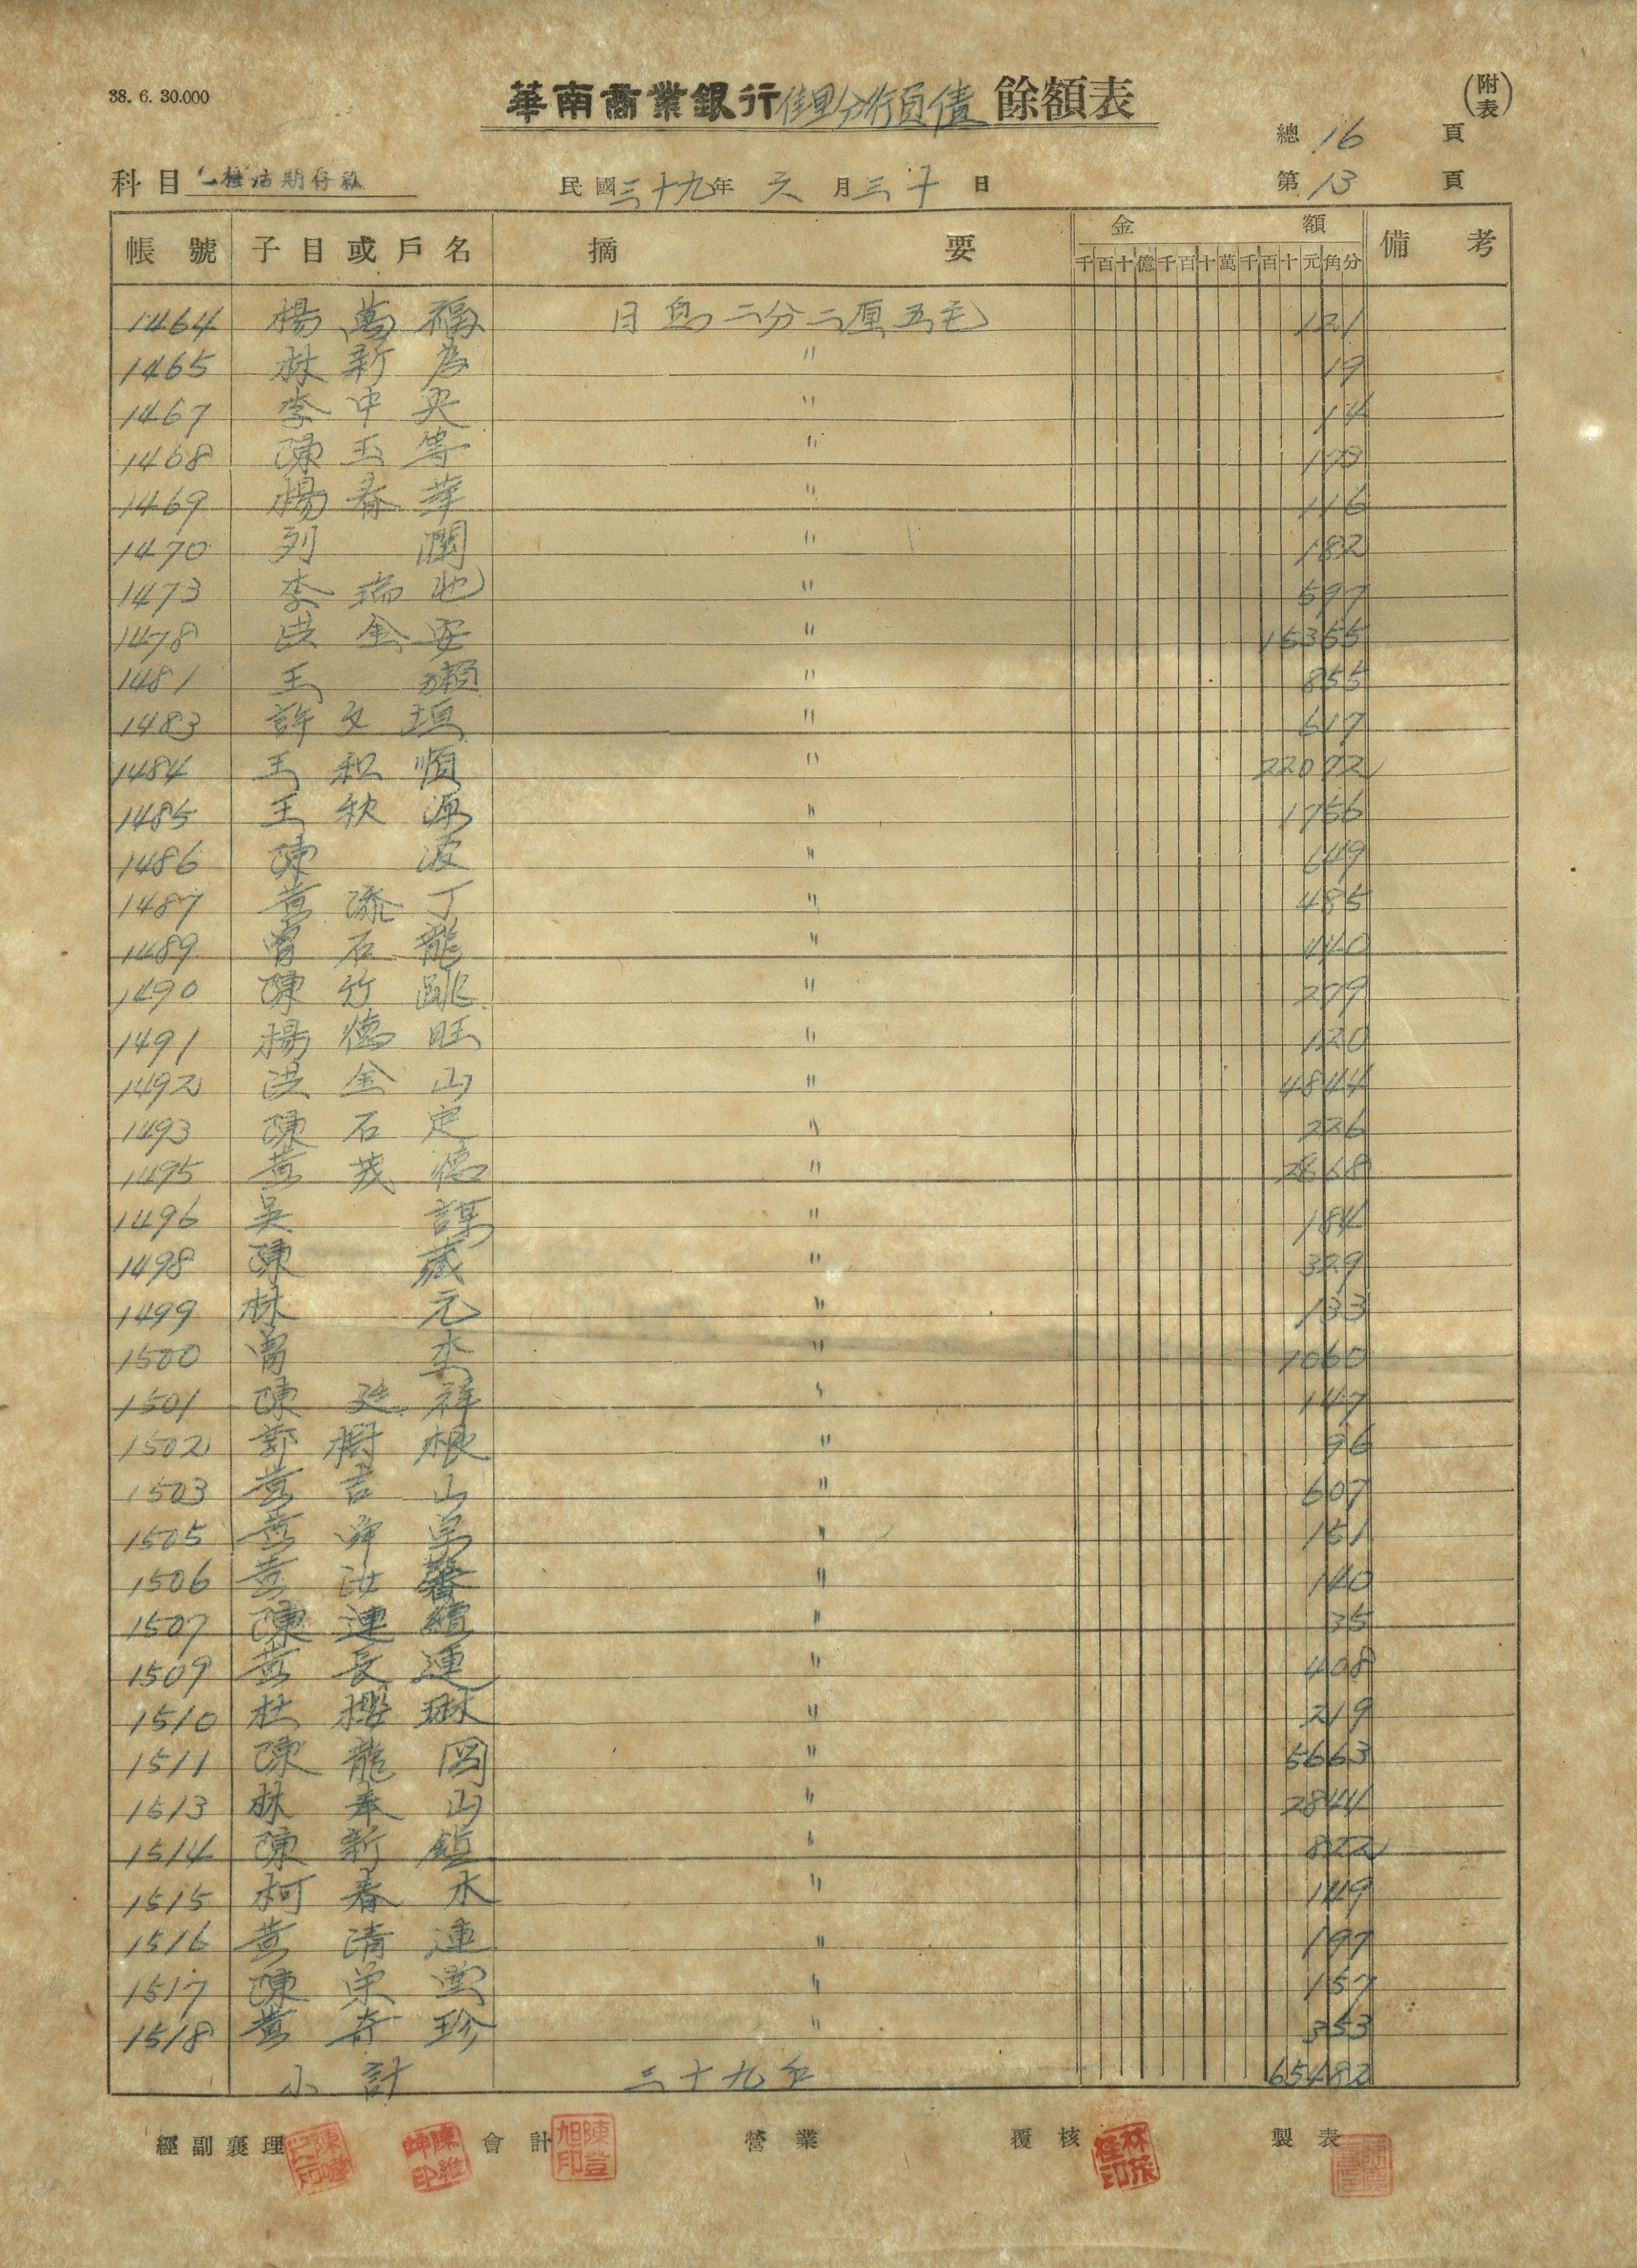 38. 6. 30.000
華南商業銀行佳里分行負債餘額表
(附表)
總16頁
科目 乙種活期存款
民國三十九年六月三十日
第13頁
帳號 子目或戶名 摘要 金額 備考
千百十億千百十萬千百十元角分
1464 楊萬福 日息二分二厘五毛 121
1465 林新為 〃 19
1467 李中央 〃 14
1468 陳玉等 〃 173
1469 楊春華 〃 116
1470 列 〃 182
1473 李瑞 〃 597
1478 洪金安 〃 15355
1481 王瀨 〃 855
1483 許文垣 〃 617
1484 王和順 〃 22072
1485 王秋源 〃 1756
1486 陳波 〃 649
1487 黃添丁 〃 485
1489 曾石龍 〃 440
1490 陳竹跳 〃 279
1491 楊德旺 〃 120
1492 洪金山 〃 4844
1493 陳石定 〃 226
1495 黃茂德 〃 2668
1496 吳謀 〃 184
1498 陳藏 〃 329
1499 林元 〃 133
1500 曾李 〃 1060
1501 陳廷祥 〃 147
1502 郭樹根 〃 96
1503 黃吉山 〃 607
1505 黃 〃 151
1506 黃 〃 140
1507 陳連 〃 35
1509 黃長連 〃 408
1510 杜櫻琳 〃 219
1511 陳龍岡 〃 5663
1513 林奉山 〃 2844
1514 陳新鎮 〃 822
1515 柯春木 〃 149
1516 黃清連 〃 197
1517 陳榮 〃 157
1518 黃奇珍 〃 353
小計 三十九名 65482
經副襄理 會計 營業 覆核 製表
陳登旭印